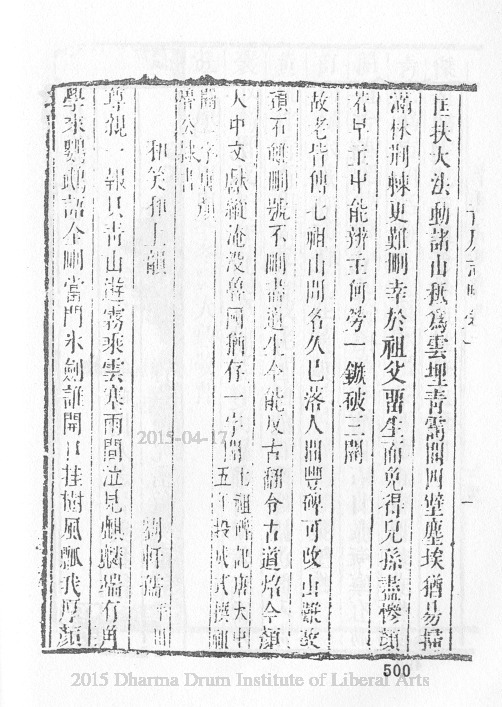 匡扶大法動諸山秖爲雲埋青靄間四壁塵埃猶易掃
滿林荆棘更難刪幸於祖父畱生面免得兒孫盡慘顏
若早正中能辨主何勞一鏃破三關
故老皆傳七祖山聞名久已落人間豐碑可攷
頑石雖刪號不刪盡道生今能反古翻令古道焰今顏
大中文獻縱淹沒魯國猶存一字關七祖碑記唐大中
五年段成式撰
魯公隸書
和笑和上韻
劉軒孺
尊親一報只青山遊霧乘雲寒雨間泣見麒麟端有角
學來鸚鵡語全刪當門氷劍誰開口挂樹風瓢我厚顏
2015-04-17
500
2015 Dharma Drum Institute of Liberal Arts